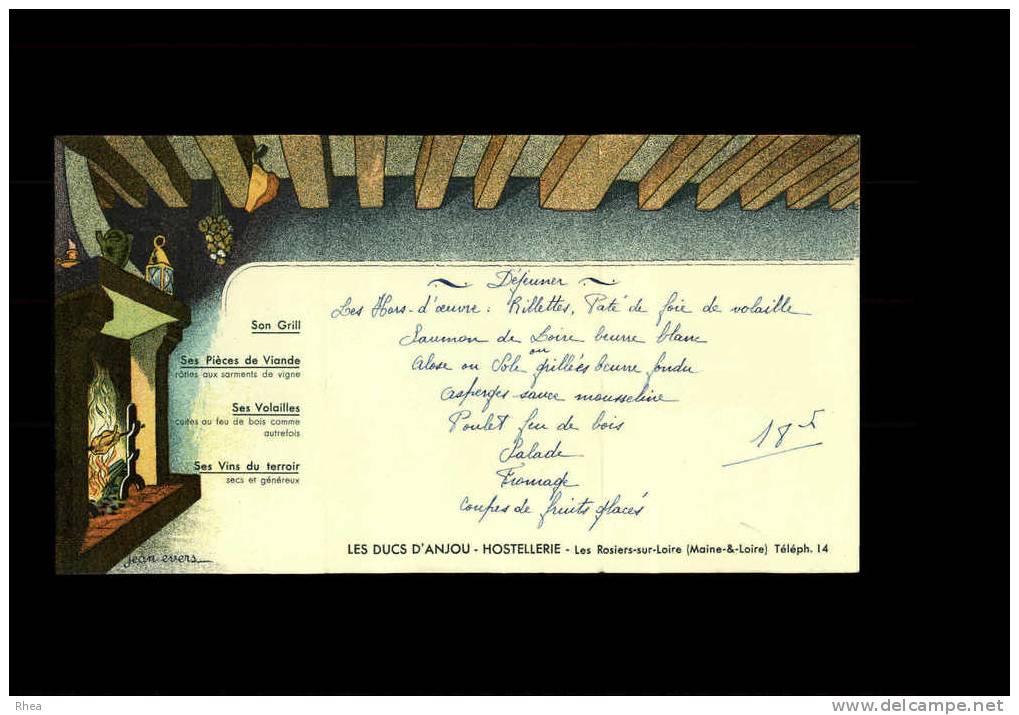 Déjeuner
Les Hors-d'œuvre : Rillettes, Paté de foie de volaille
Saumon de Loire beurre blanc
ou
Alose ou Sole grillées beurre fondu
Asperges sauce mousseline
Poulet feu de bois
Salade
Fromage
Coupes de fruits glacés
Son Grill
Ses Pièces de Viande
rôties aux sarments de vigne
Ses Volailles
cuites au feu de bois comme
autrefois
Ses Vins du terroir
secs et généreux
LES DUCS D'ANJOU - HOSTELLERIE - Les Rosiers-sur-Loire (Maine-&-Loire) Téléph. 14
jean evers
Rhea
www.delcampe.net